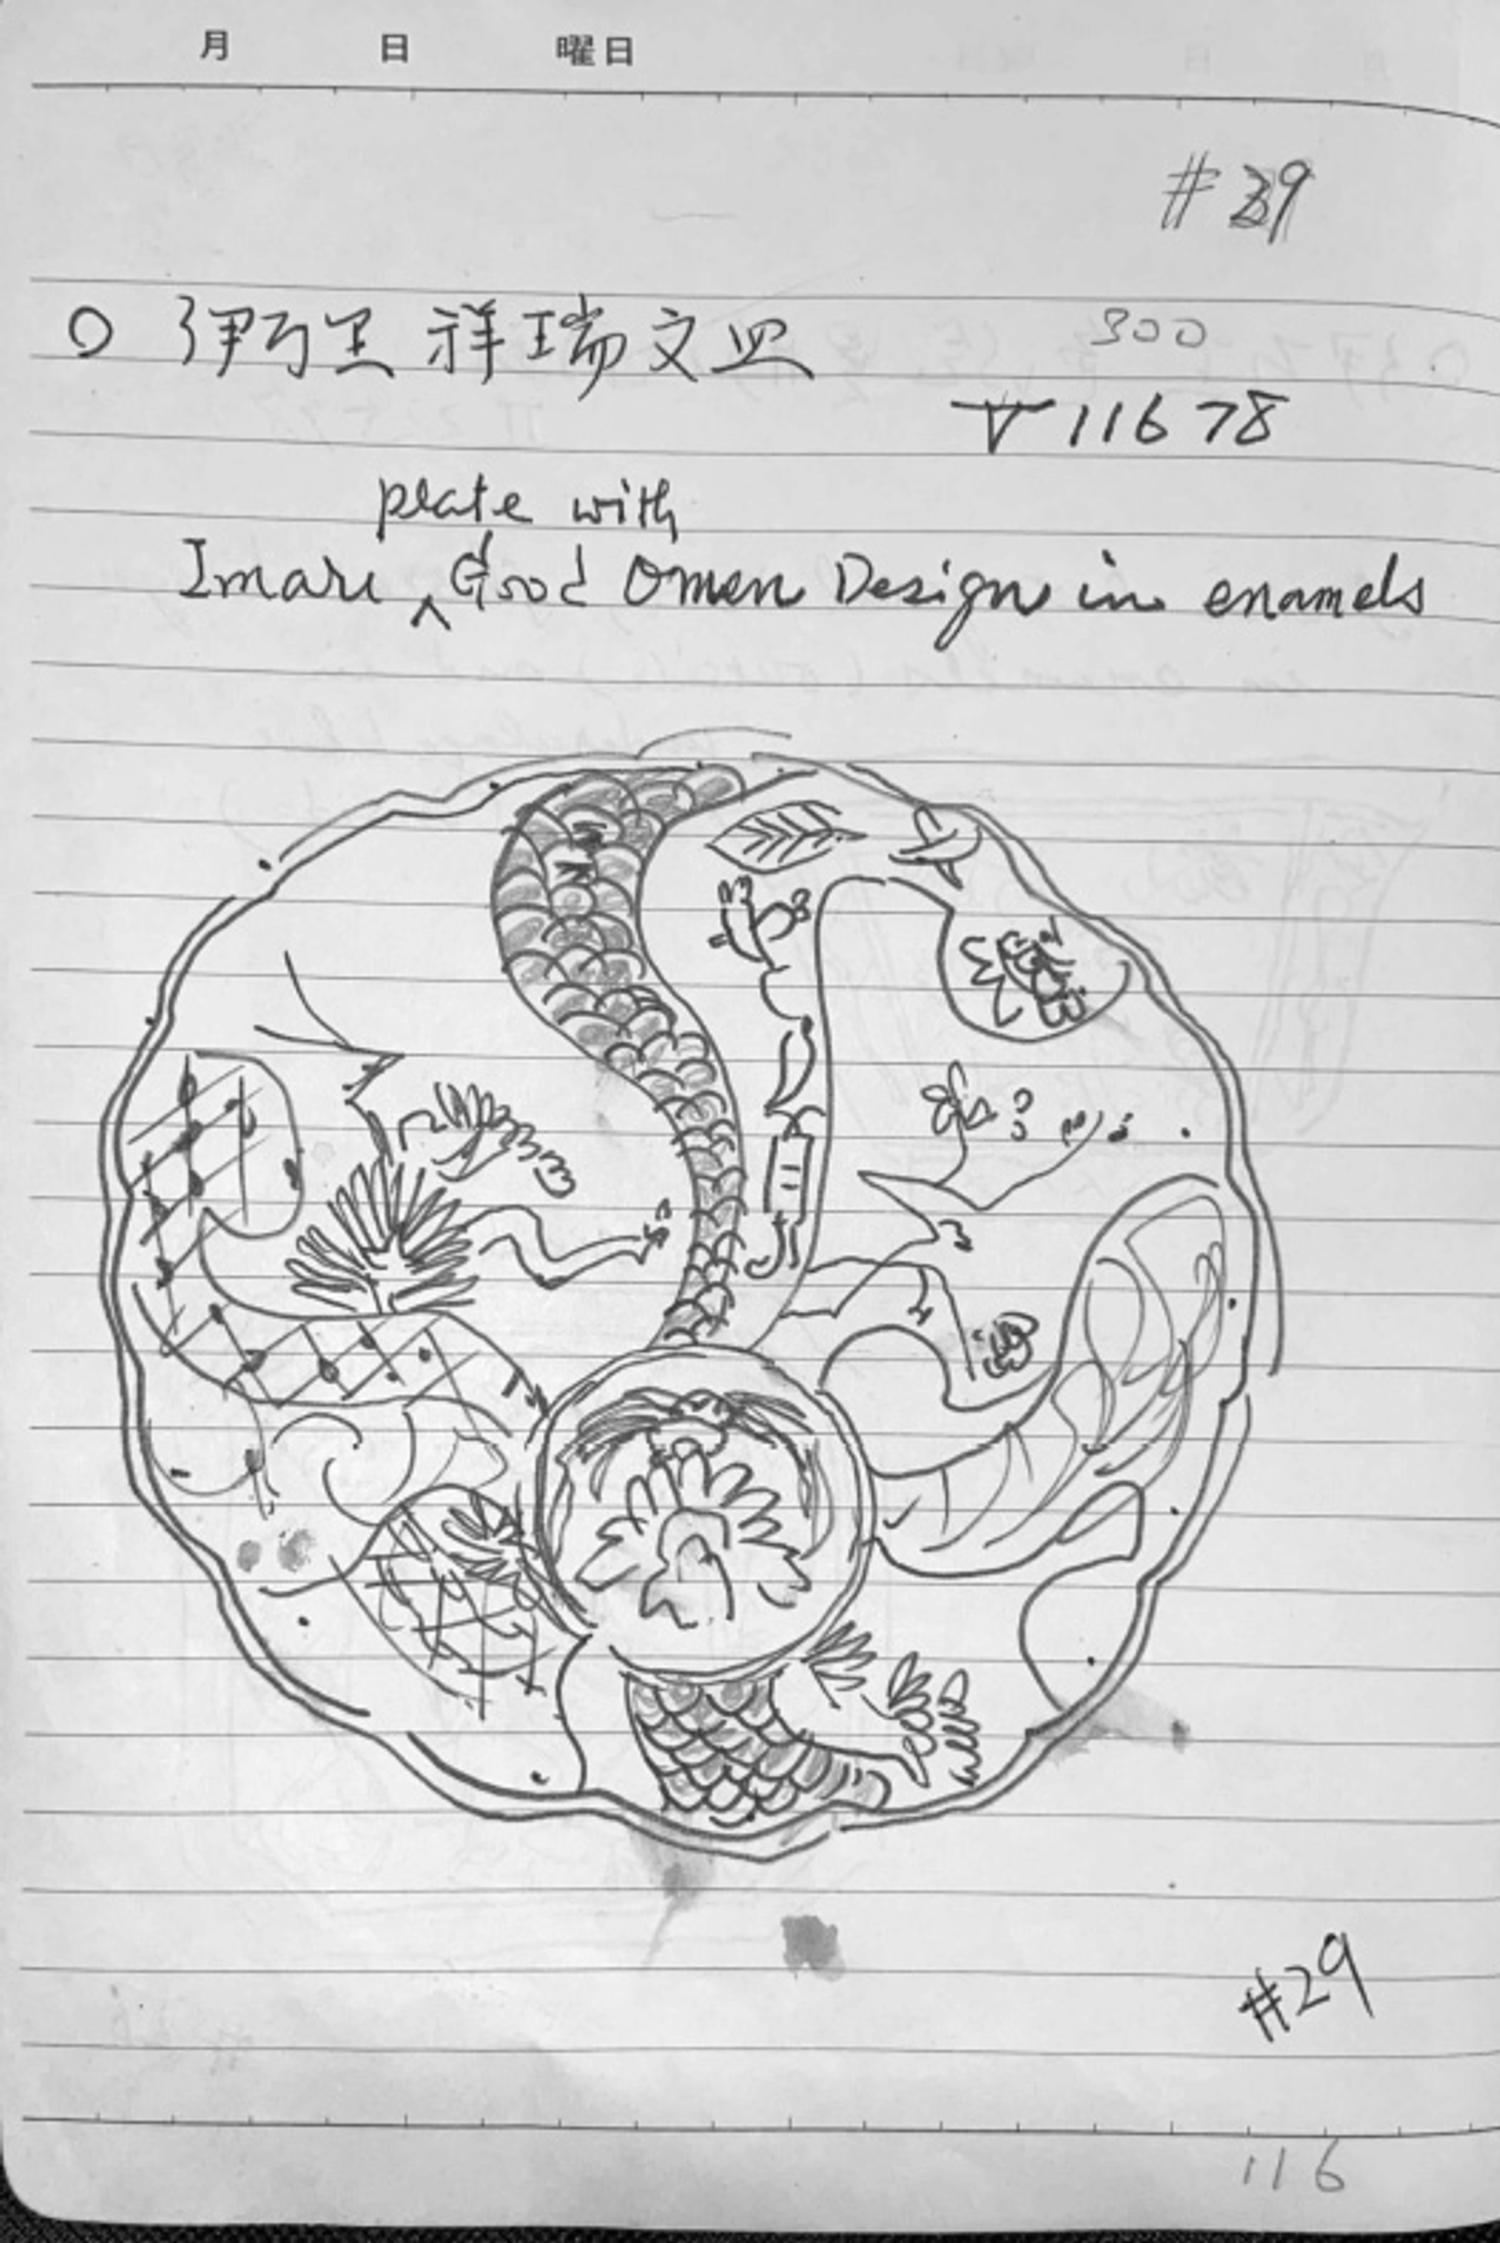 月 日 曜日
#29
○ 伊万里 祥瑞文皿
300
V11678
plate with
Imari ^ Good Omen Design in enamels
#29
116